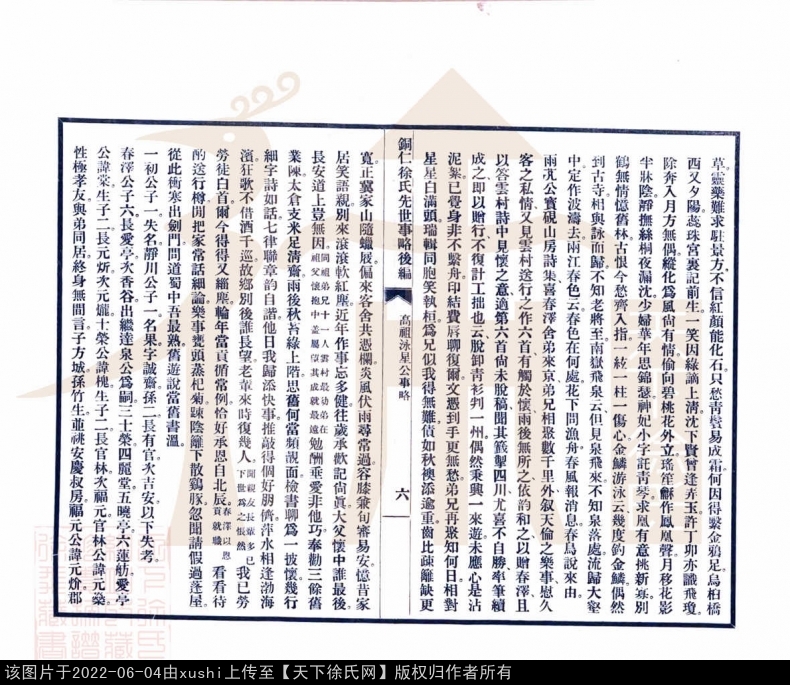 草靈藥難求駐景方不信紅顏能化石只愁靑鬢易成霜何因得繫金鴉足烏桕橋
西又夕陽蕊珠宮裏記前生一笑因緣謫上淸沈下賢曾逢弄玉許丁卯亦識飛瓊
除奔入月方無偶縱化爲風尙有情偷向碧桃花外立瑤笙龢作鳳凰聲月移花影
半牀陰靜撫絲桐夜漏沈少婦華年思錦瑟神妃小字託靑琴求凰有意挑新寡別
鶴無情憶舊林古恨今愁齊入指一絃一柱一傷心金鱗游泳云幾度釣金鱗偶然
到古寺相與詠而歸不知老將至南嶽飛泉云但見泉飛來不知泉落處流歸大壑
中定作波濤去兩江春色云春色在何處花下問漁舟春風報消息春鳥說來由
雨亢公寶硯山房詩集喜春澤舍弟來京弟兄相聚數千里外叙天倫之樂事慰久
客之私情又見雲村送行之作六首有觸於懷雨後無所之依韵和之以贈春澤且
以答雲村詩中見懷之意適第六首尙未脫稿聞其籤掣四川尤喜不自勝率筆續
成之即以贈行不復計工拙也云脫卸靑衫判一州偶然乘興一來遊未應心是沾
泥絮已覺身非不繫舟印結費脣聊復爾文憑到手更無愁弟兄再聚知何日相對
星星白滿頭瑞輯同胞笑執桓爲兄似我得無難債如秋襖添逾重齒比疎籬缺更
銅仁徐氏先世事略後編
高祖泳星公事略
六
寬正冀家山隨蠟屐偏來客舍共憑欄炎風伏雨尋常過容膝兼旬審易安憶昔家
居笑語親別來滾滾軟紅塵近年作事忘多健往歲承歡記尙眞大父懷中誰最後
長安道上豈無因同祖弟兄十一人雲村最幼弟在祖父懷抱中並屬望其成就最遠勉酬垂愛非他巧奉勸三餘舊
業陳太倉支米足淸齋雨後秋苔綠上階思舊何當頻覿面檢書聊爲一披懷幾行
細字詩如話七律聯章韵自諧他日我歸添快事推敲得個好朋儕萍水相逢渤海
濱狂歌不惜酒千巡故鄉別後誰長望老輩來時復幾人聞親友長輩多已下世爲之悵然我已勞
勞徒白首爾今得得又緇塵輪年當貢循常例恰好承恩自北辰春澤以恩貢就職看看待
酌送行樽閒把家常話細論樂事甕頭蒸杞菊疎陰籬下散鷄豚忽聞請假過蓬屋
從此衝寒出劍門問道蜀中吾最熟舊遊說當舊書溫
一初公子一失名靜川公子一名果字誠齋孫二長有官次吉安以下失考
春澤公子六長愛亭次香谷出繼達泉公爲嗣三士榮四麗堂五曉亭六蓮舫愛亭
公諱棠生子二長元炘次元爐士榮公諱槐生子二長官林次福元官林公諱元燊
性極孝友與弟同居終身無間言子方城孫竹生並祧安慶叔房福元公諱元炌郡
该图片于2022-06-04由xushi上传至【天下徐氏网】版权归作者所有